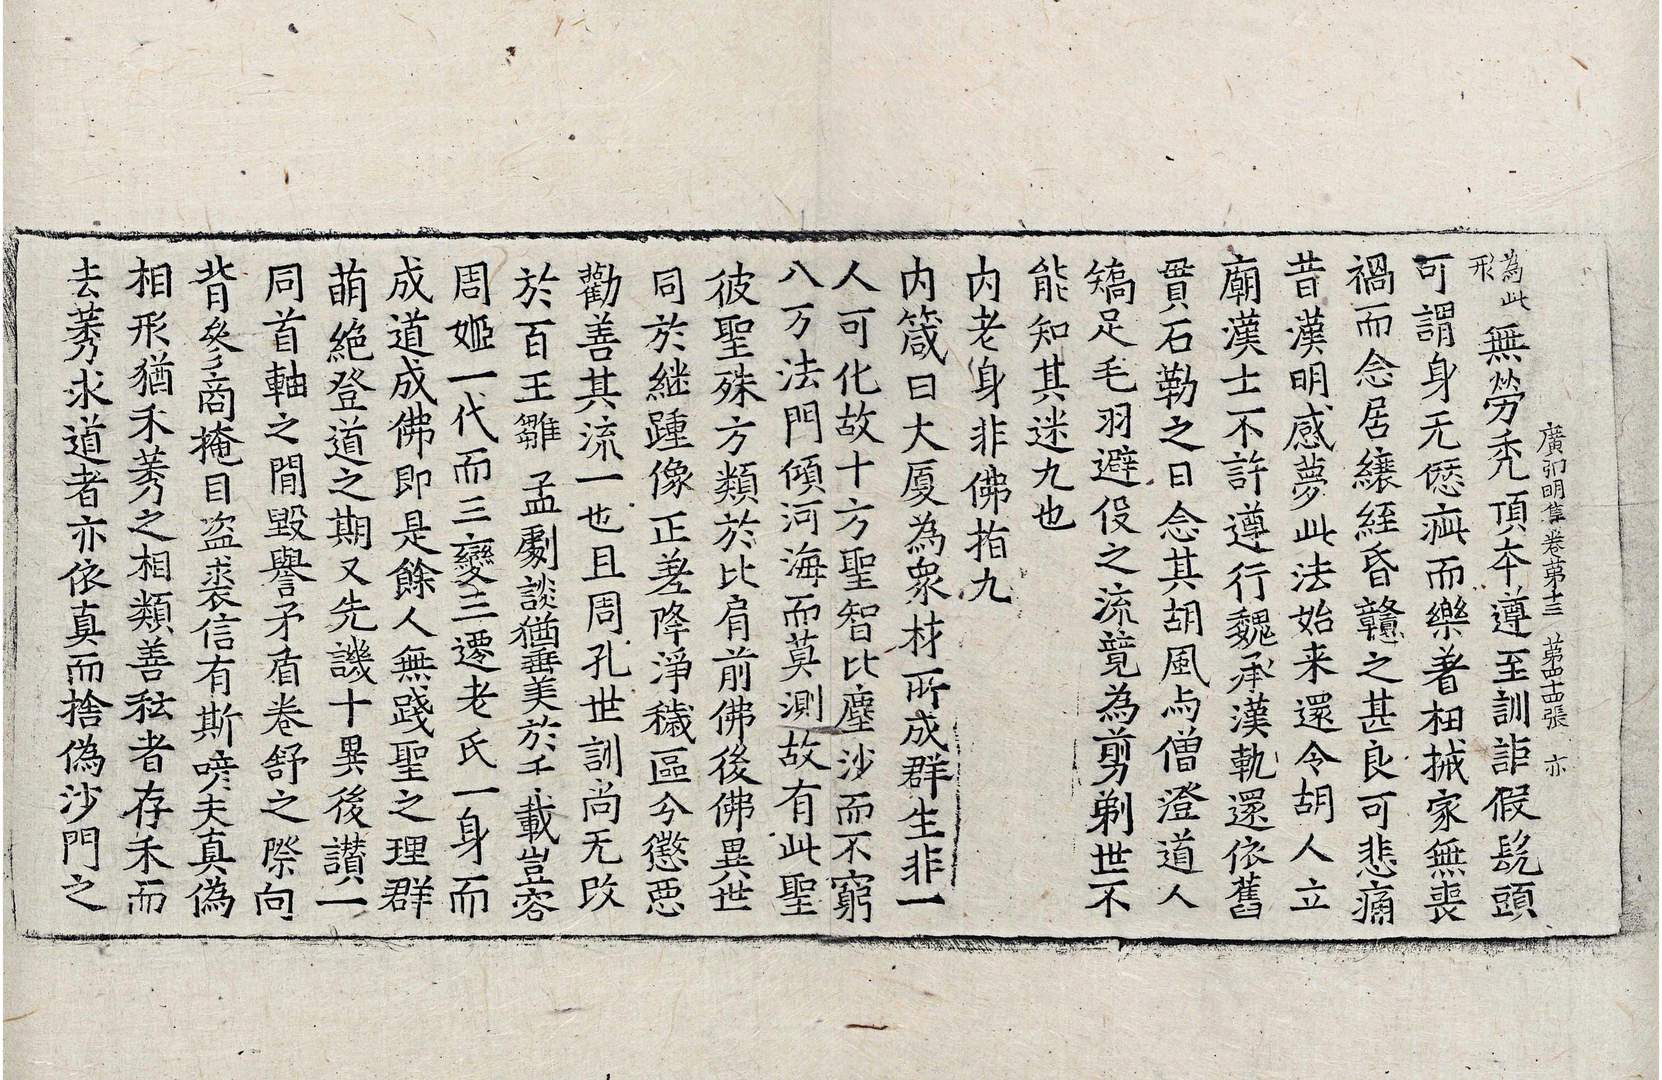 廣弘明集卷第十三 第四十四張 亦
為此形無勞禿頂本遵至訓詎假髡頭
可謂身无愆疵而樂著杻械家無喪
禍而念居縗絰昏戇之甚良可悲痛
昔漢明感夢此法始来還令胡人立
廟漢士不許遵行魏承漢軌還依舊
貫石勒之日念其胡風与僧澄道人
矯足毛羽避役之流競為剪剃世不
能知其迷九也
内老身非佛指九
内箴曰大厦為衆材所成群生非一
人可化故十方聖智比塵沙而不窮
八万法門傾河海而莫測故有此聖
彼聖殊方類於比肩前佛後佛異世
同於継踵像正差降淨穢區分懲惡
勸善其流一也且周孔世訓尚无改
於百王雛孟劇談猶垂美於千載豈容
周姬一代而三變三遷老氏一身而
成道成佛即是餘人無踐聖之理群
萌絶登道之期又先譏十異後讃一
同首軸之間毀譽矛盾卷舒之際向
背參商掩目盗裘信有斯喭夫真偽
相形猶禾莠之相類善耘者存禾而
去莠求道者亦依真而捨偽沙門之